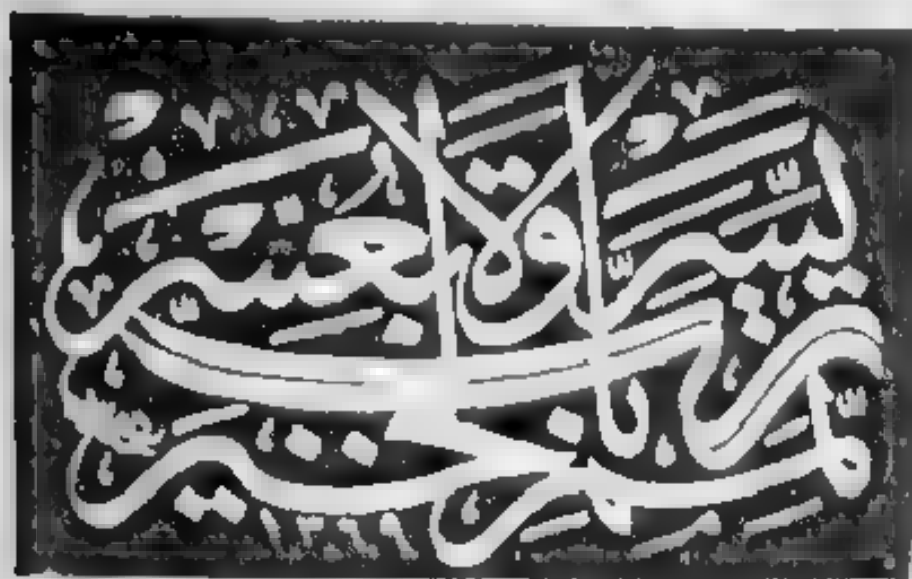 رب يسر ولا تعسر
رب تمم بالخير